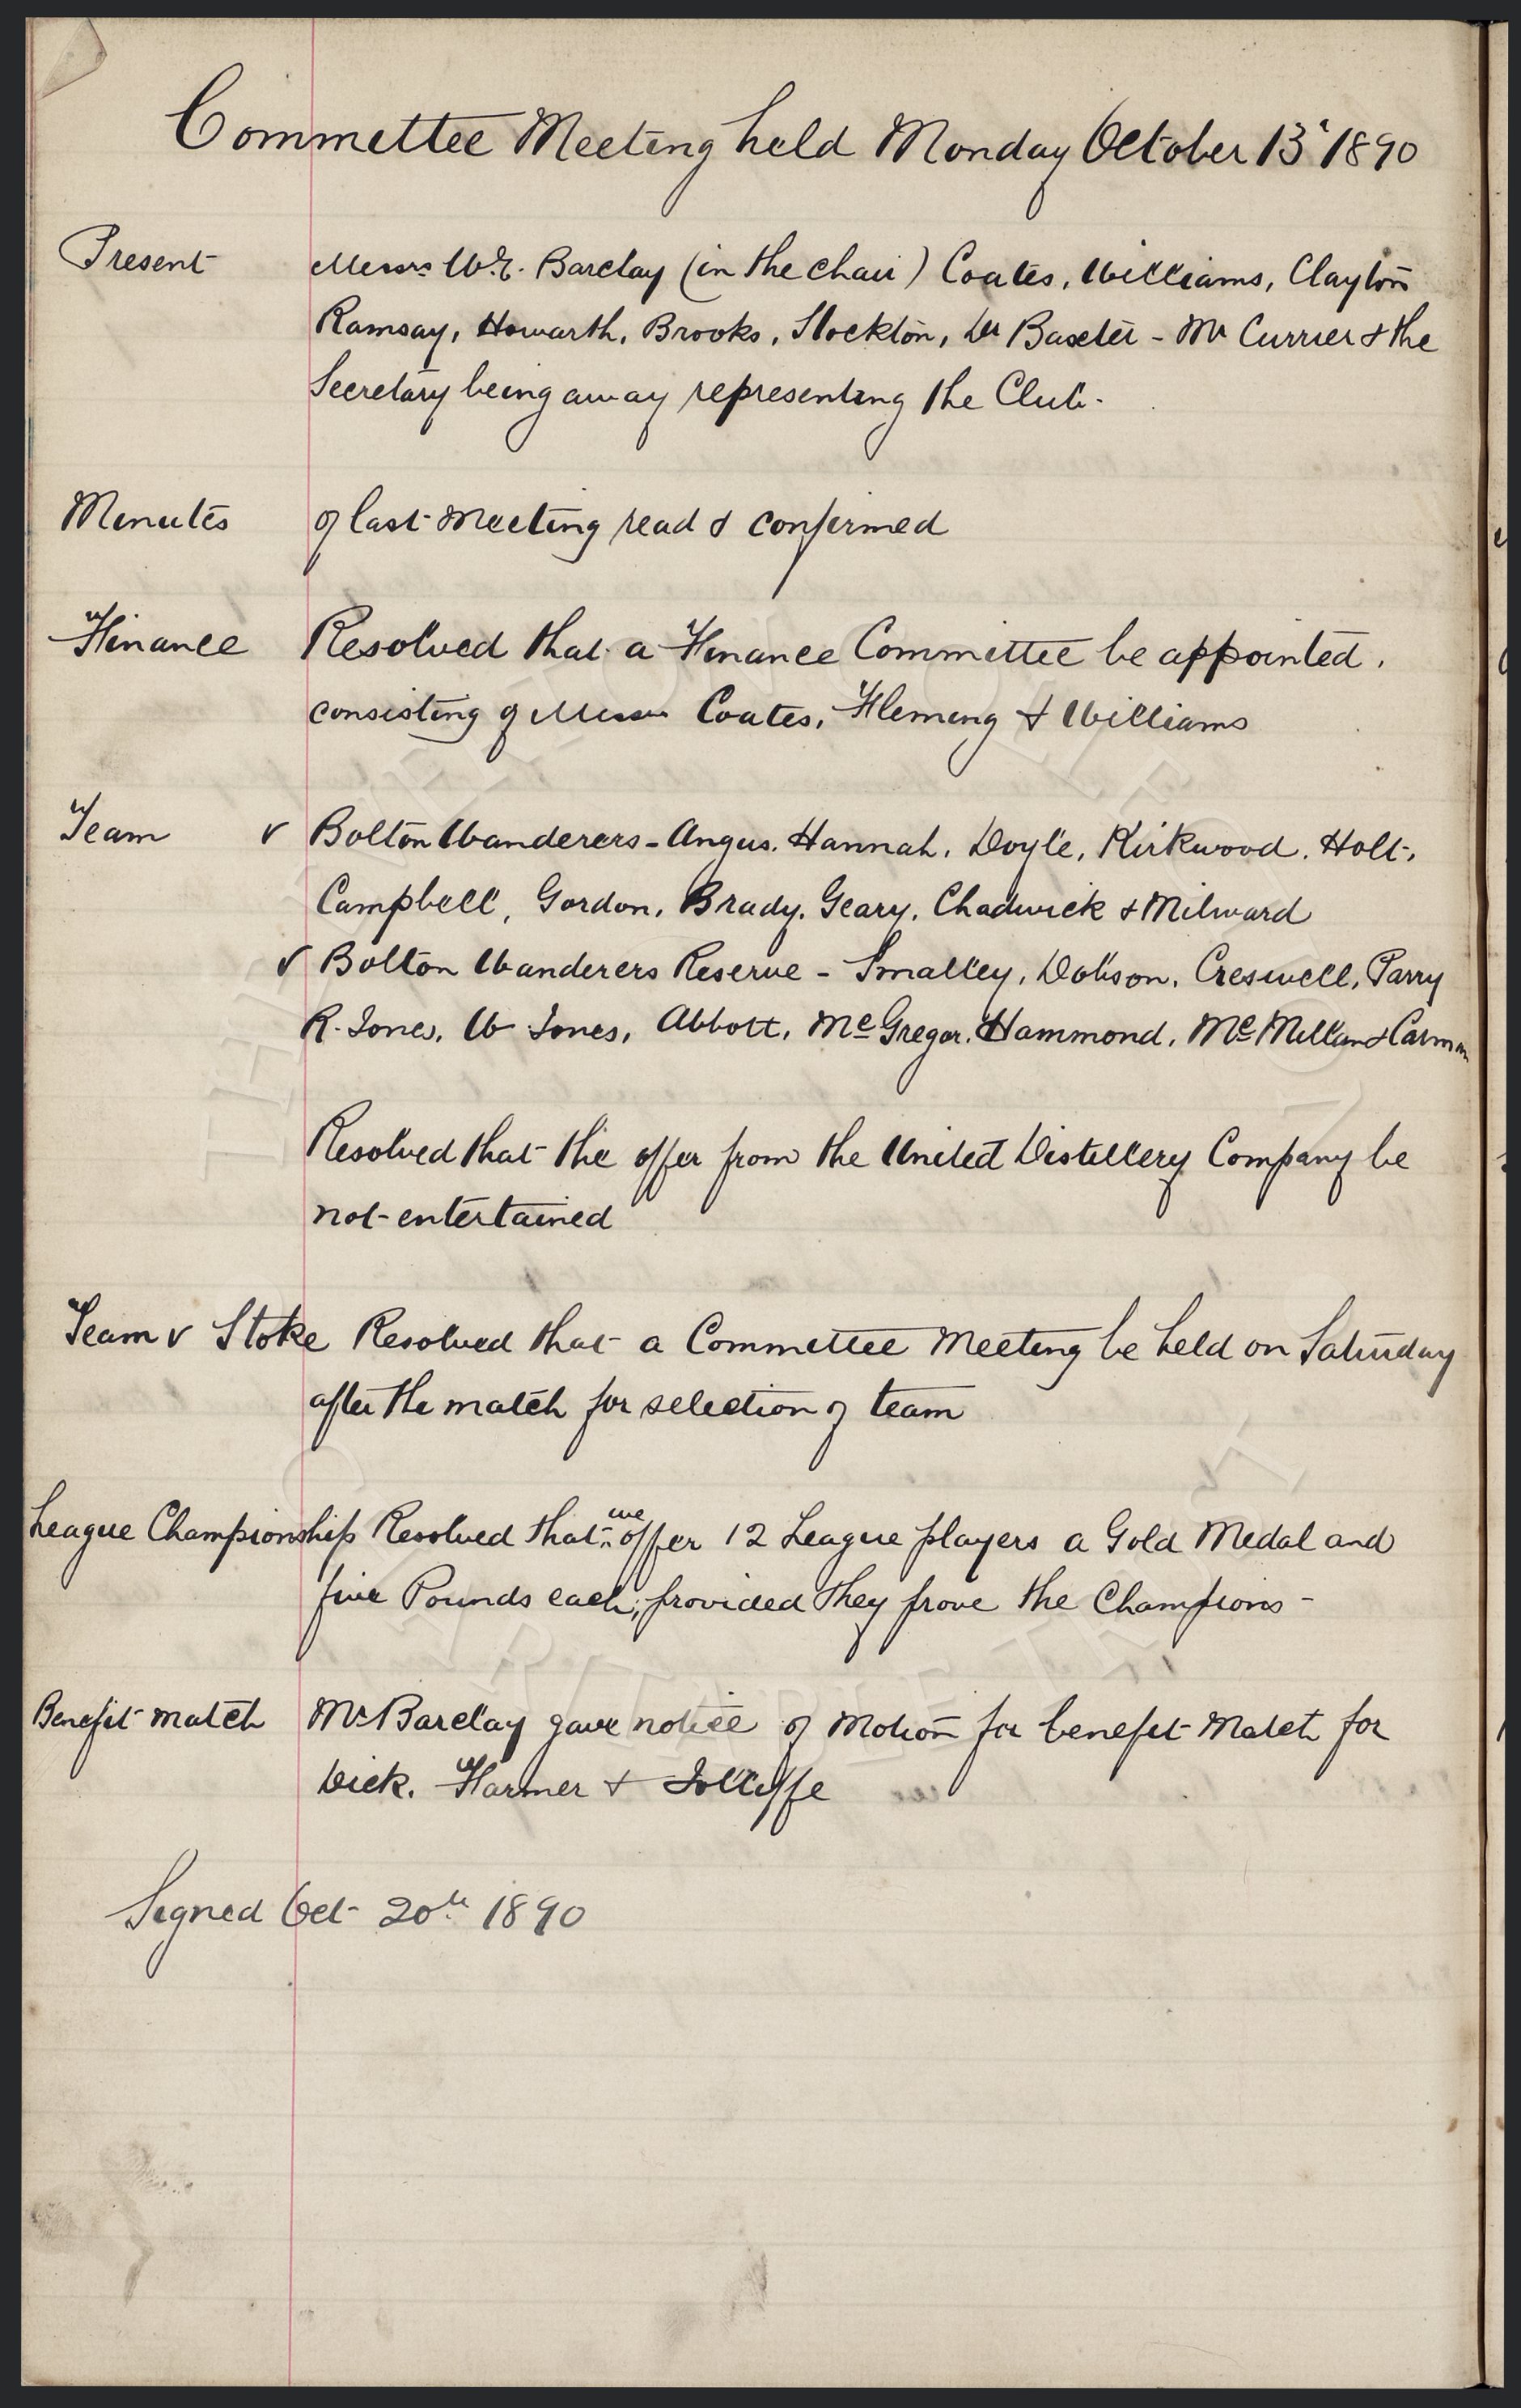 Committee Meeting held Monday October 13 1890
Present Messrs W.E. Barclay (in the chair) Coates, Williams, Clayton
Ramsay, Howarth, Brooks, Stockton, Dr Baxter - Mr Currier & the
Secretary being away representing the Club.
Minutes of last Meeting read & confirmed
Finance Resolved that a Finance Committee be appointed.
consisting of Messrs Coates, Fleming & Williams
Team v Bolton Wanderers - Angus. Hannah. Doyle, Kirkwood. Holt.
Campbell, Gordon, Brady. Geary. Chadwick & Milward
v Bolton Wanderers Reserve - Smalley, Dobson. Creswell, Parry
R. Jones, W Jones, Abbott, McGregor. Hammond, McMillan & Carmen
Resolved that the offer from the United Distillery Company be
not entertained
Team v Stoke Resolved that a Committee Meeting be held on Saturday
after the match for selection of team
League Championship Resolved that we offer 12 League players a Gold Medal and
five Pounds each, provided they prove the Champions -
Benefit match Mr Barclay gave notice of Motion for benefit Match for
Dick. Farmer & Jolliffe
Signed Oct 20th 1890